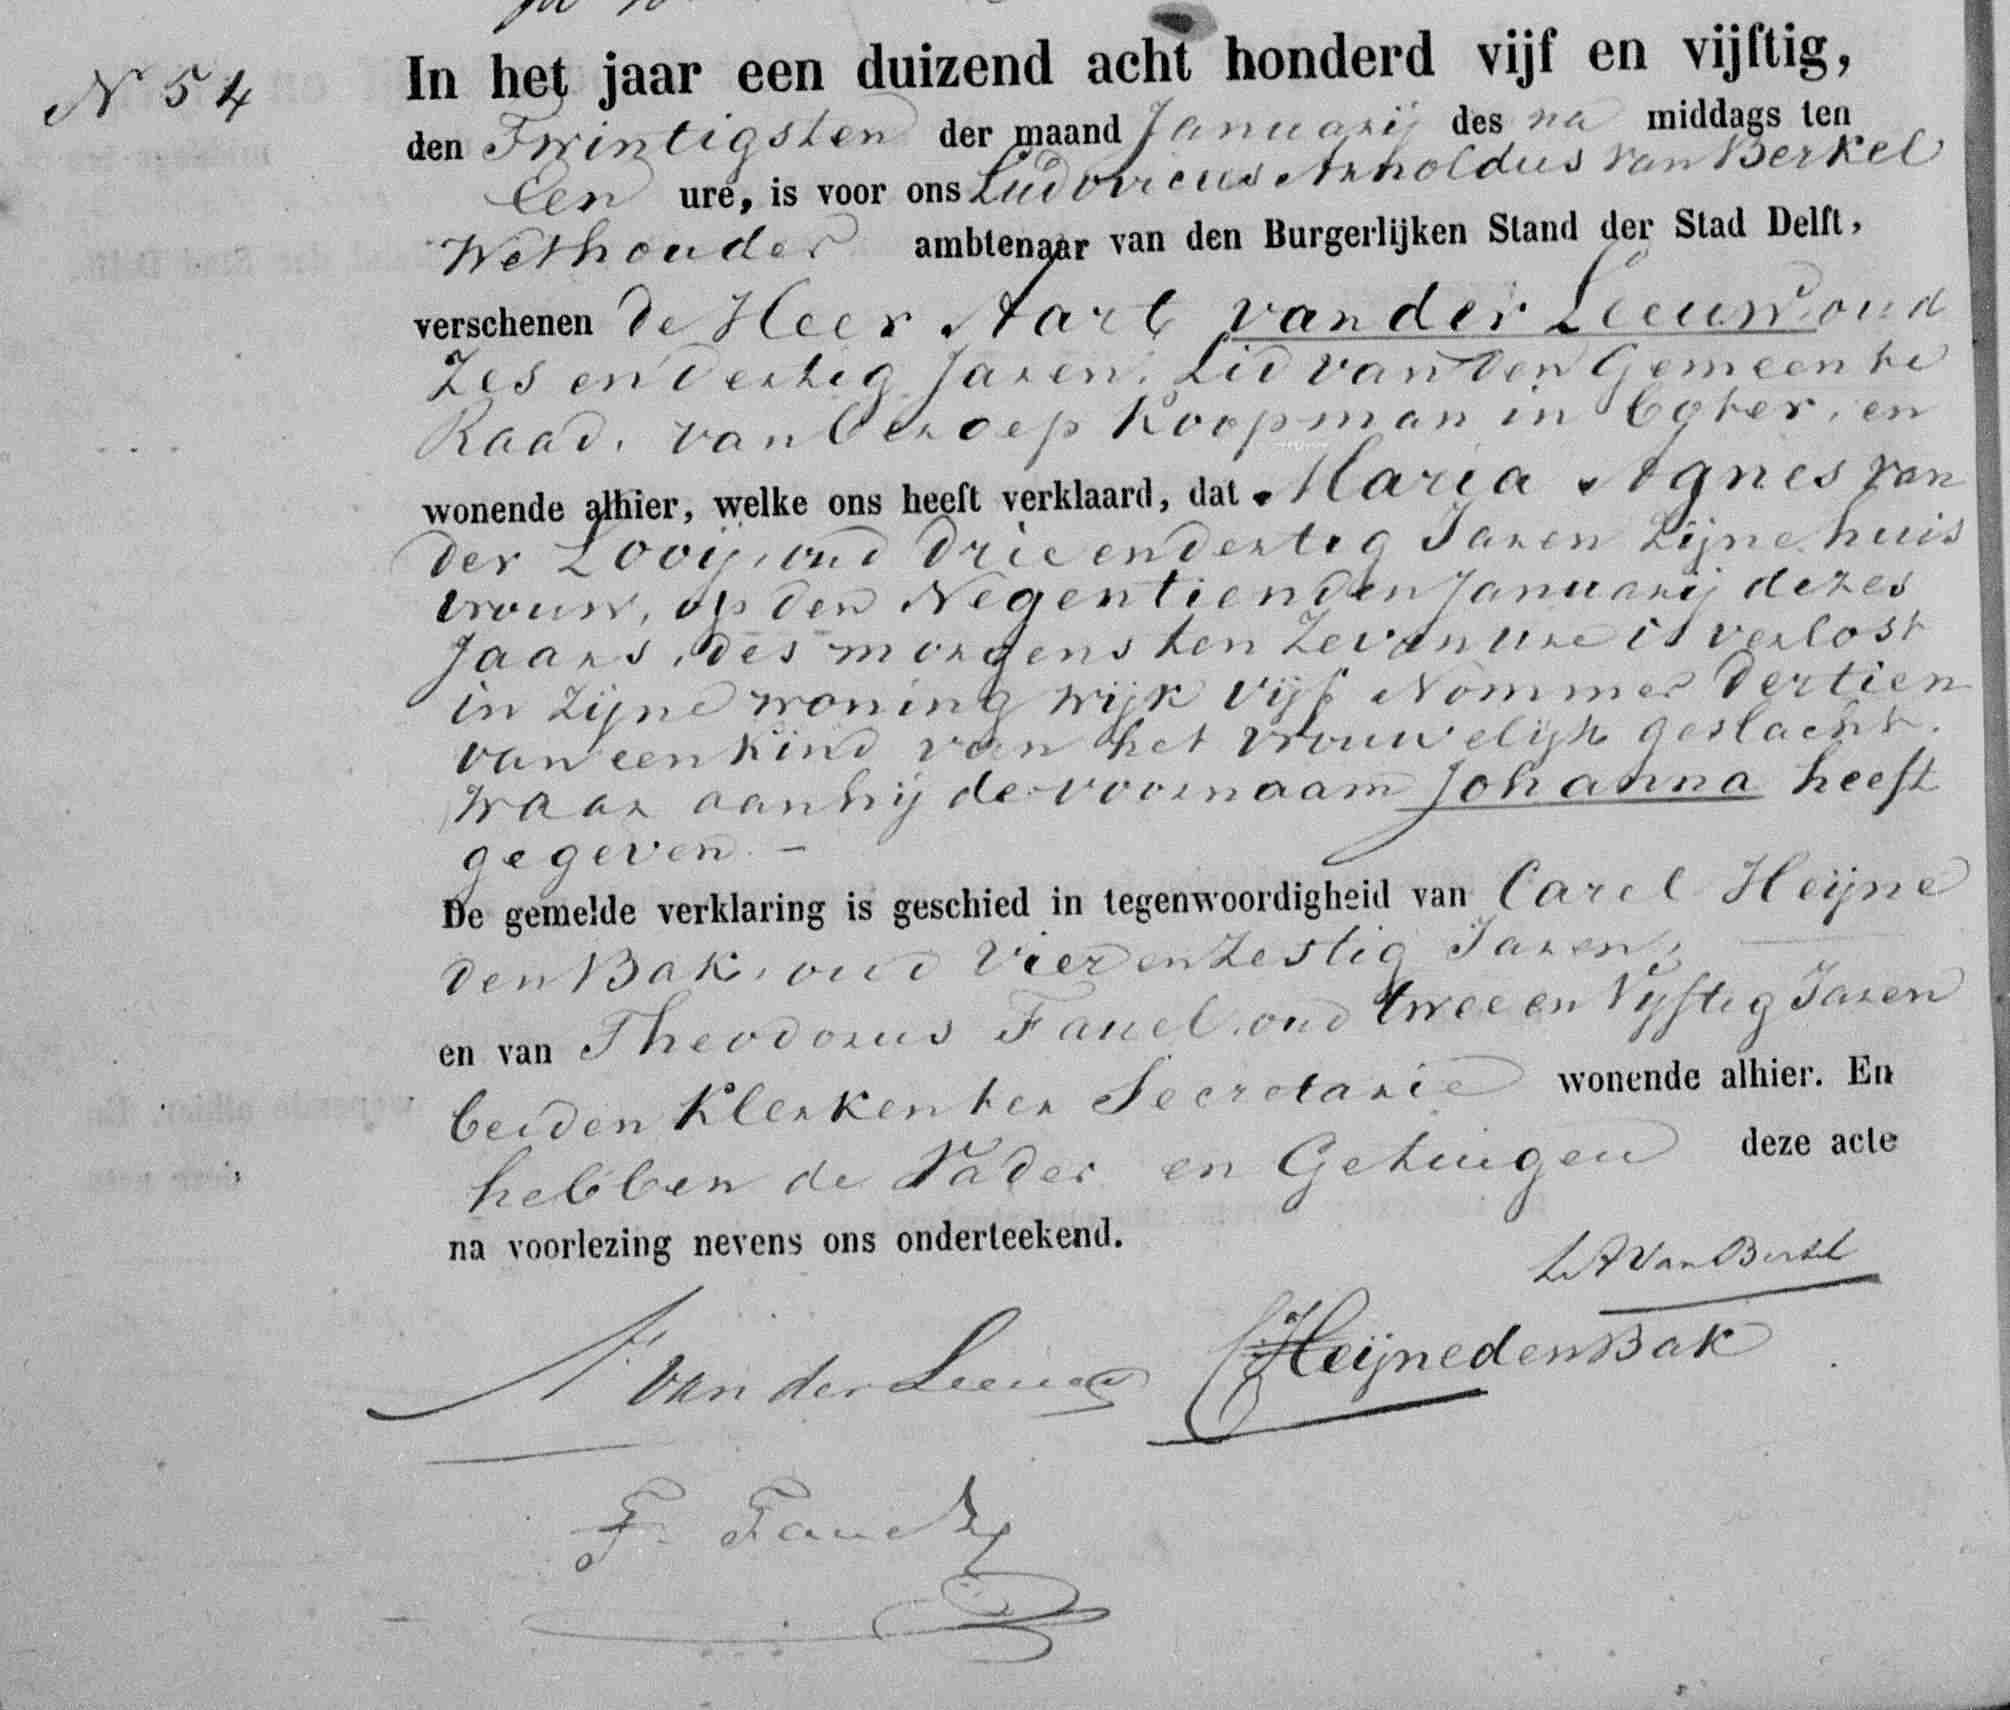 N 54
In het jaar een duizend acht honderd vijf en vijftig,
den Twintigsten der maand Januarij des na middags ten
Een ure, is voor ons Ludovicus Arnoldus van Berkel
Wethouder ambtenaar van den Burgerlijken Stand der Stad Delft,
verschenen de Heer Aart van der Leeuw oud
Zes en dertig Jaren, Lid van den Gemeente
Raad, van beroep Koopman in Boter, en
wonende alhier, welke ons heeft verklaard, dat Maria Agnes van
der Looij, oud drie en dertig Jaren Zijne huis
vrouw, op den Negentienden Januarij dezes
Jaars, des morgens ten Zeven ure is verlost
in Zijne woning wijk vijf Nommer dertien
van een kind van het vrouwelijk geslacht.
waar aan hij de voornaam Johanna heeft
gegeven. -
De gemelde verklaring is geschied in tegenwoordigheid van Carel Heijne
den Bak, oud Vier en Zestig Jaren,
en van Theodorus Fauel oud twee en Vijftig Jaren
beiden Klerken ter Secretarie wonende alhier. En
hebben de Vader en Getuigen deze acte
na voorlezing nevens ons onderteekend.
L A Van Berkel
A van der Leeuw C Heijne den Bak
T. Fauel